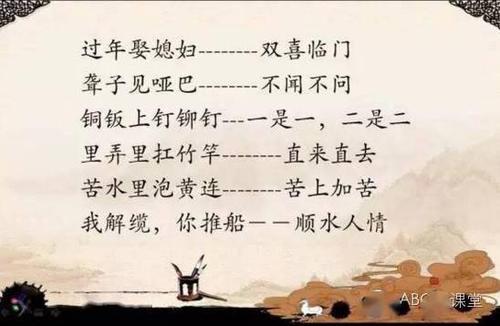 过年娶媳妇--------双喜临门
聋子见哑巴--------不闻不问
铜钣上钉铆钉---一是一，二是二
里弄里扛竹竿--------直来直去
苦水里泡黄连--------苦上加苦
我解缆，你推船－－顺水人情
课堂